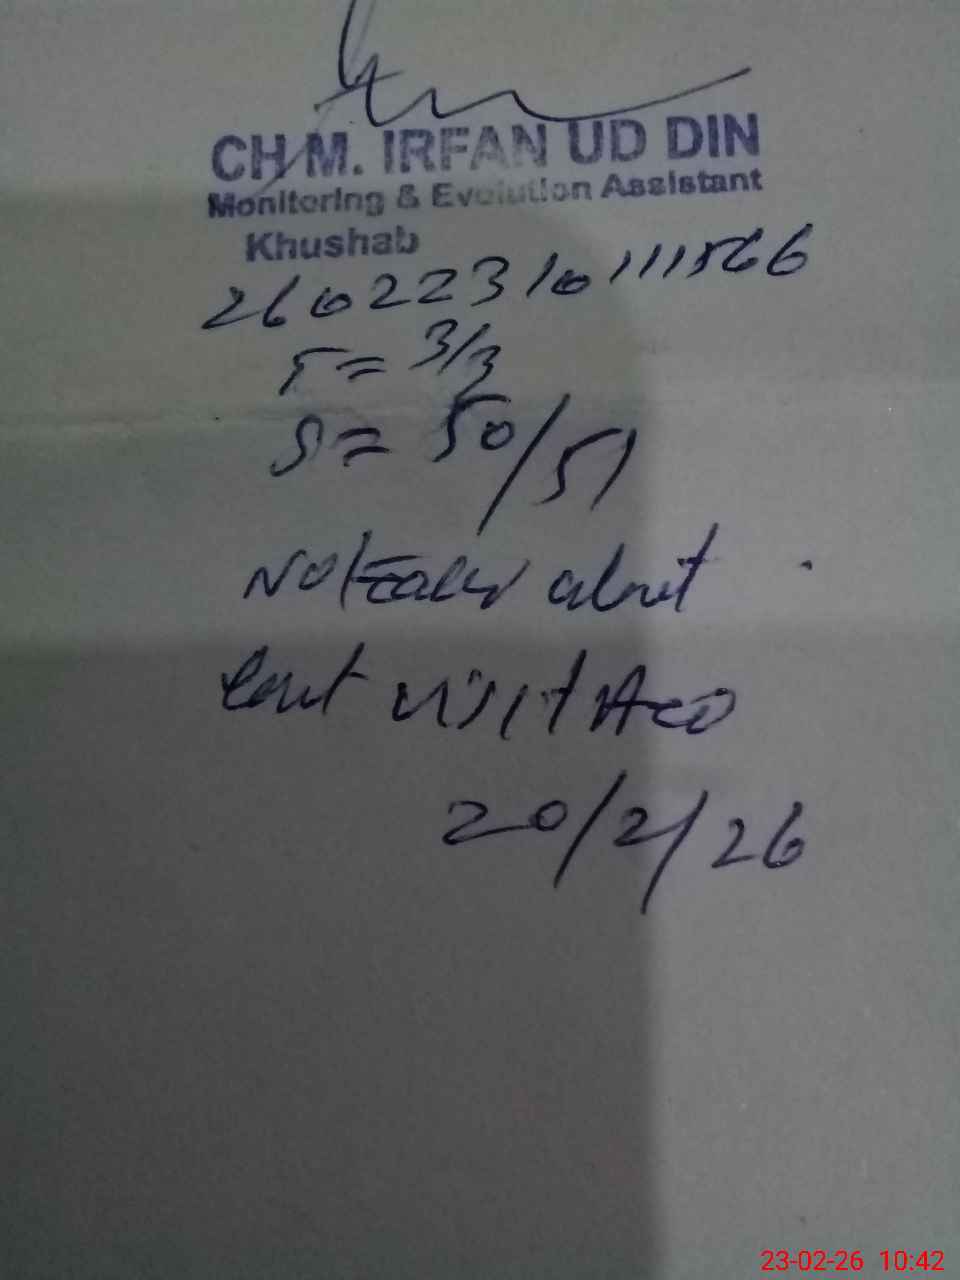 CH M. IRFAN UD DIN
Monitoring & Evolution Assistant
Khushab
26022310111566
T= 3/3
S= 50/51
about
last visit AEO
20/2/26
23-02-26 10:42